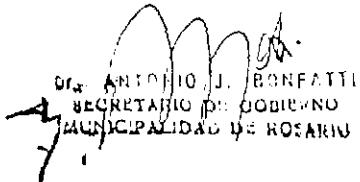 Dr. ANTONIO J. BONFATTI
SECRETARIO DE GOBIERNO
MUNICIPALIDAD DE ROSARIO